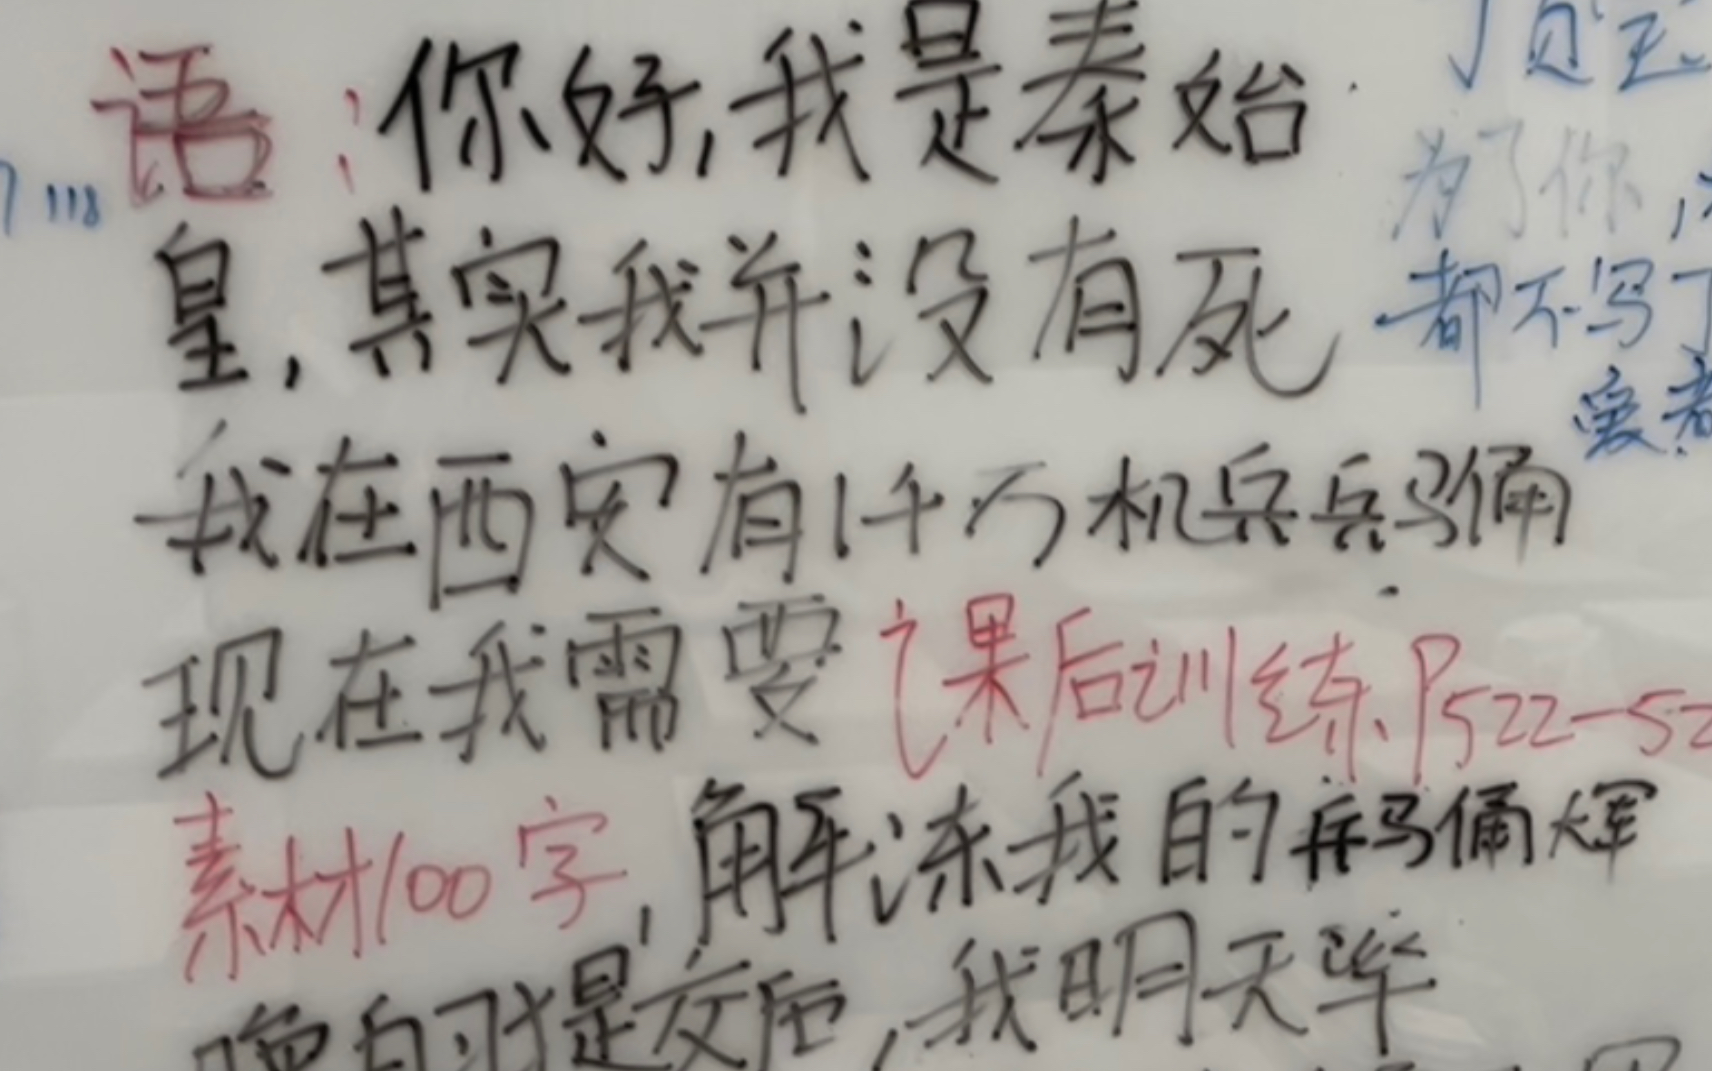 语：你好，我是秦始
皇，其实我并没有死
我在西安有1千万机兵兵马俑
现在我需要课后训练、P522-52
素材100字，解冻我的兵马俑大军
晚自习提交后，我明天率
为了你，
都不写了